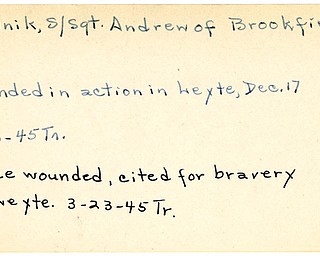 nik, S/Sgt. Andrew of Brookfi
nded in action in Leyte, Dec. 17
-45 Tr.
e wounded, cited for bravery
eyte. 3-23-45 Tr.